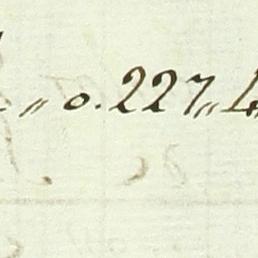 „ o. 227 „